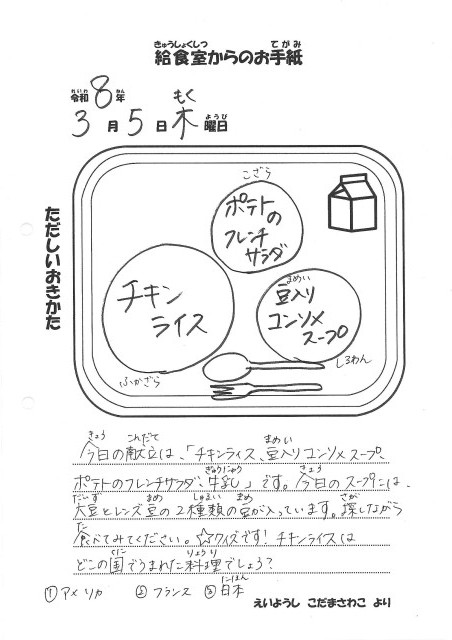 きゅうしょくしつ てがみ
給食室からのお手紙
れいわ ねん
令和8年
もく ようび
3月5日木曜日
ただしいおきかた
こざら
ポテトの
フレンチ
サラダ
チキン
ライス
ふかざら
まめい
豆入り
コンソメ
スープ
しるわん
きょう こんだて まめい
今日の献立は、「チキンライス、豆入りコンソメスープ、
ぎゅうにゅう きょう
ポテトのフレンチサラダ、牛乳」です。今日のスープには、
だいず まめ しゅるい まめ さが
大豆とレンズ豆の2種類の豆が入っています。探しながら
た
食べてみてください。☆クイズです!チキンライスは
くに りょうり
どこの国でうまれた料理でしょう?
にほん
①アメリカ ②フランス ③日本
えいようし こだまさわこ より